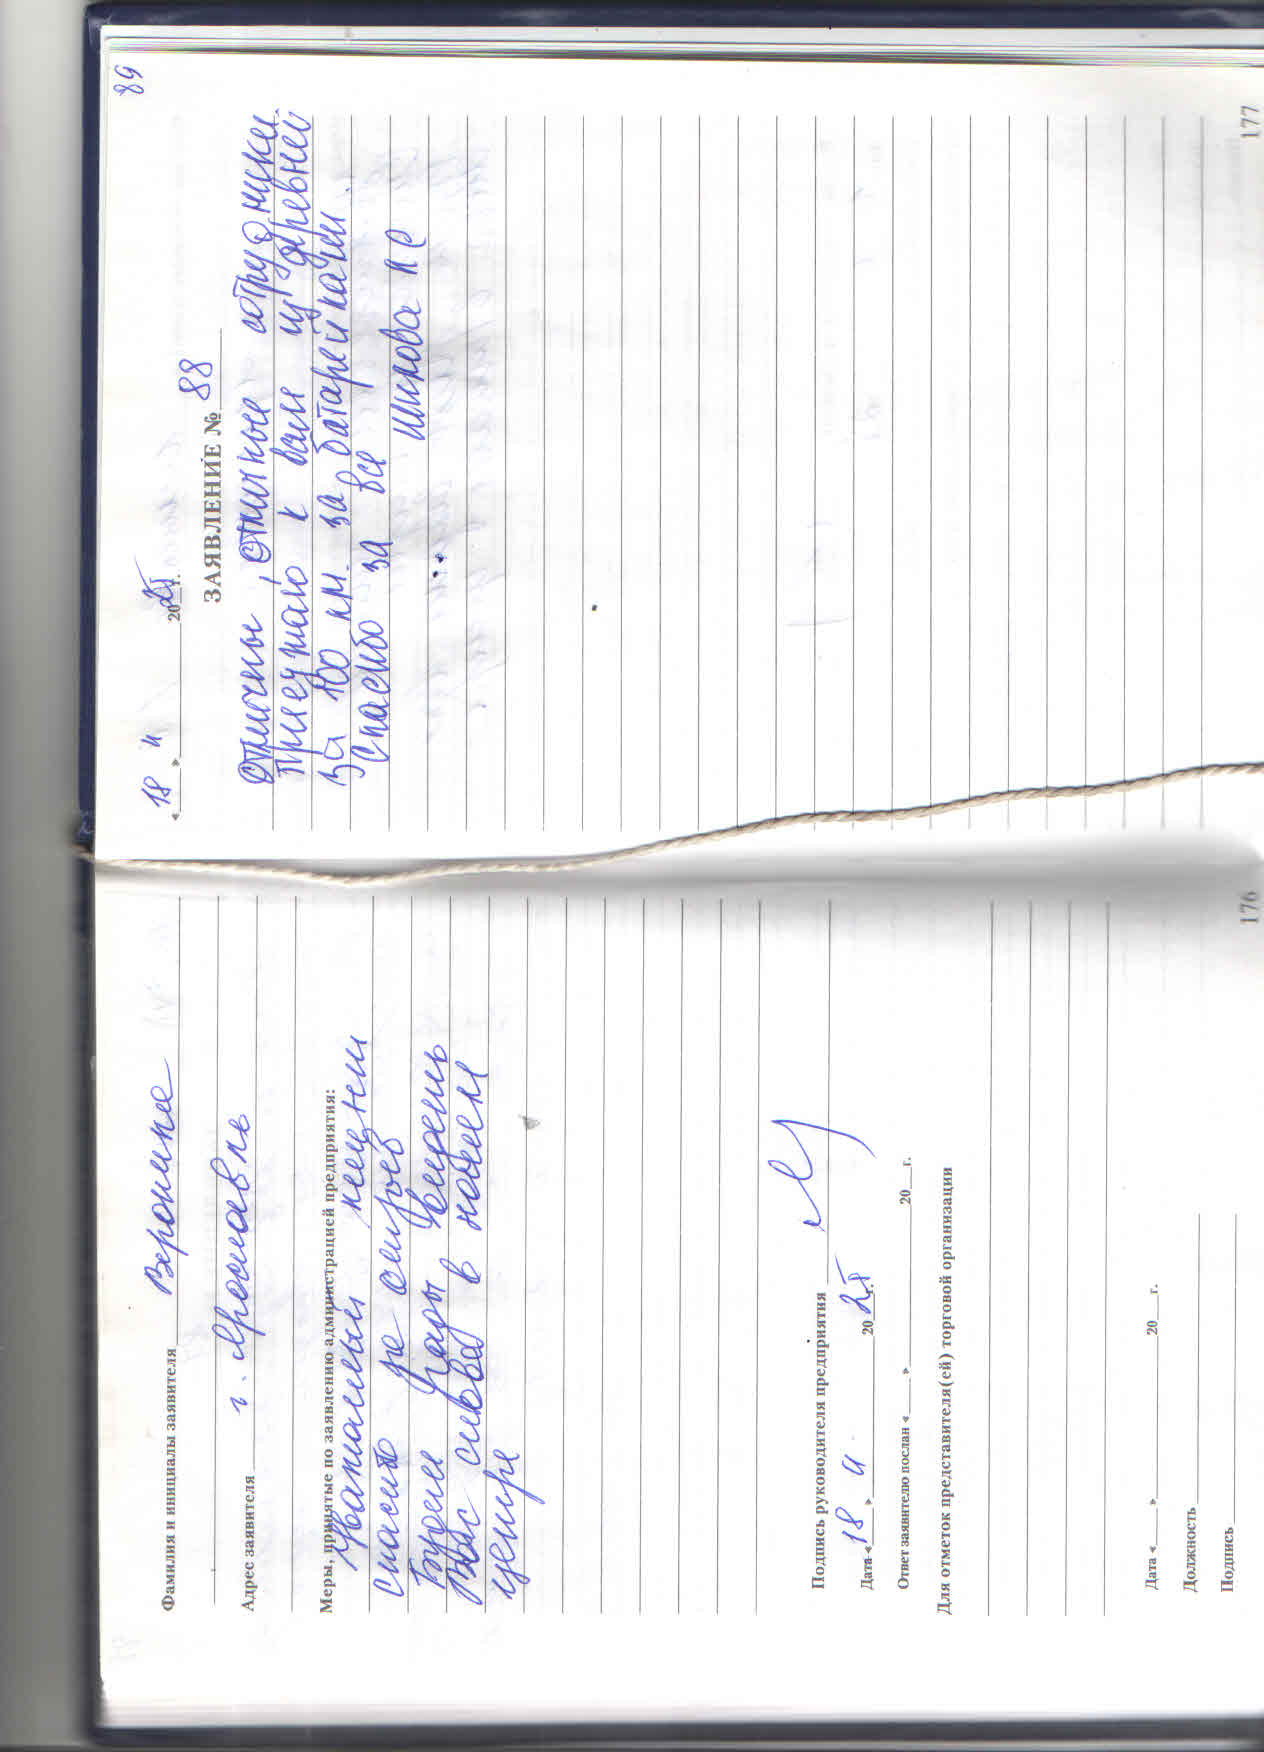 Фамилия и инициалы заявителя Вероника
Адрес заявителя г. Ярославль
Меры, принятые по заявлению администрацией предприятия:
Уважаемый
Спасибо за отзыв
Будем рады видеть
Вас снова в нашем
центре
Подпись руководителя предприятия
Дата «18» 4 2025г.
Ответ заявителю послан «___» ___ 20__г.
Для отметок представителя(ей) торговой организации
Дата «___» ___ 20__г.
Должность
Подпись
176
89
«18» 4 2025г.
ЗАЯВЛЕНИЕ № 88
Отличны, отличные сотрудники.
Приезжаю к вам из деревней
за 100 км. за батарейками.
Спасибо за все
ПС
177